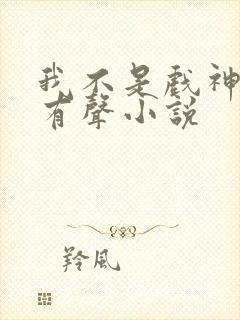 我不是戲神
有聲小説
羚風